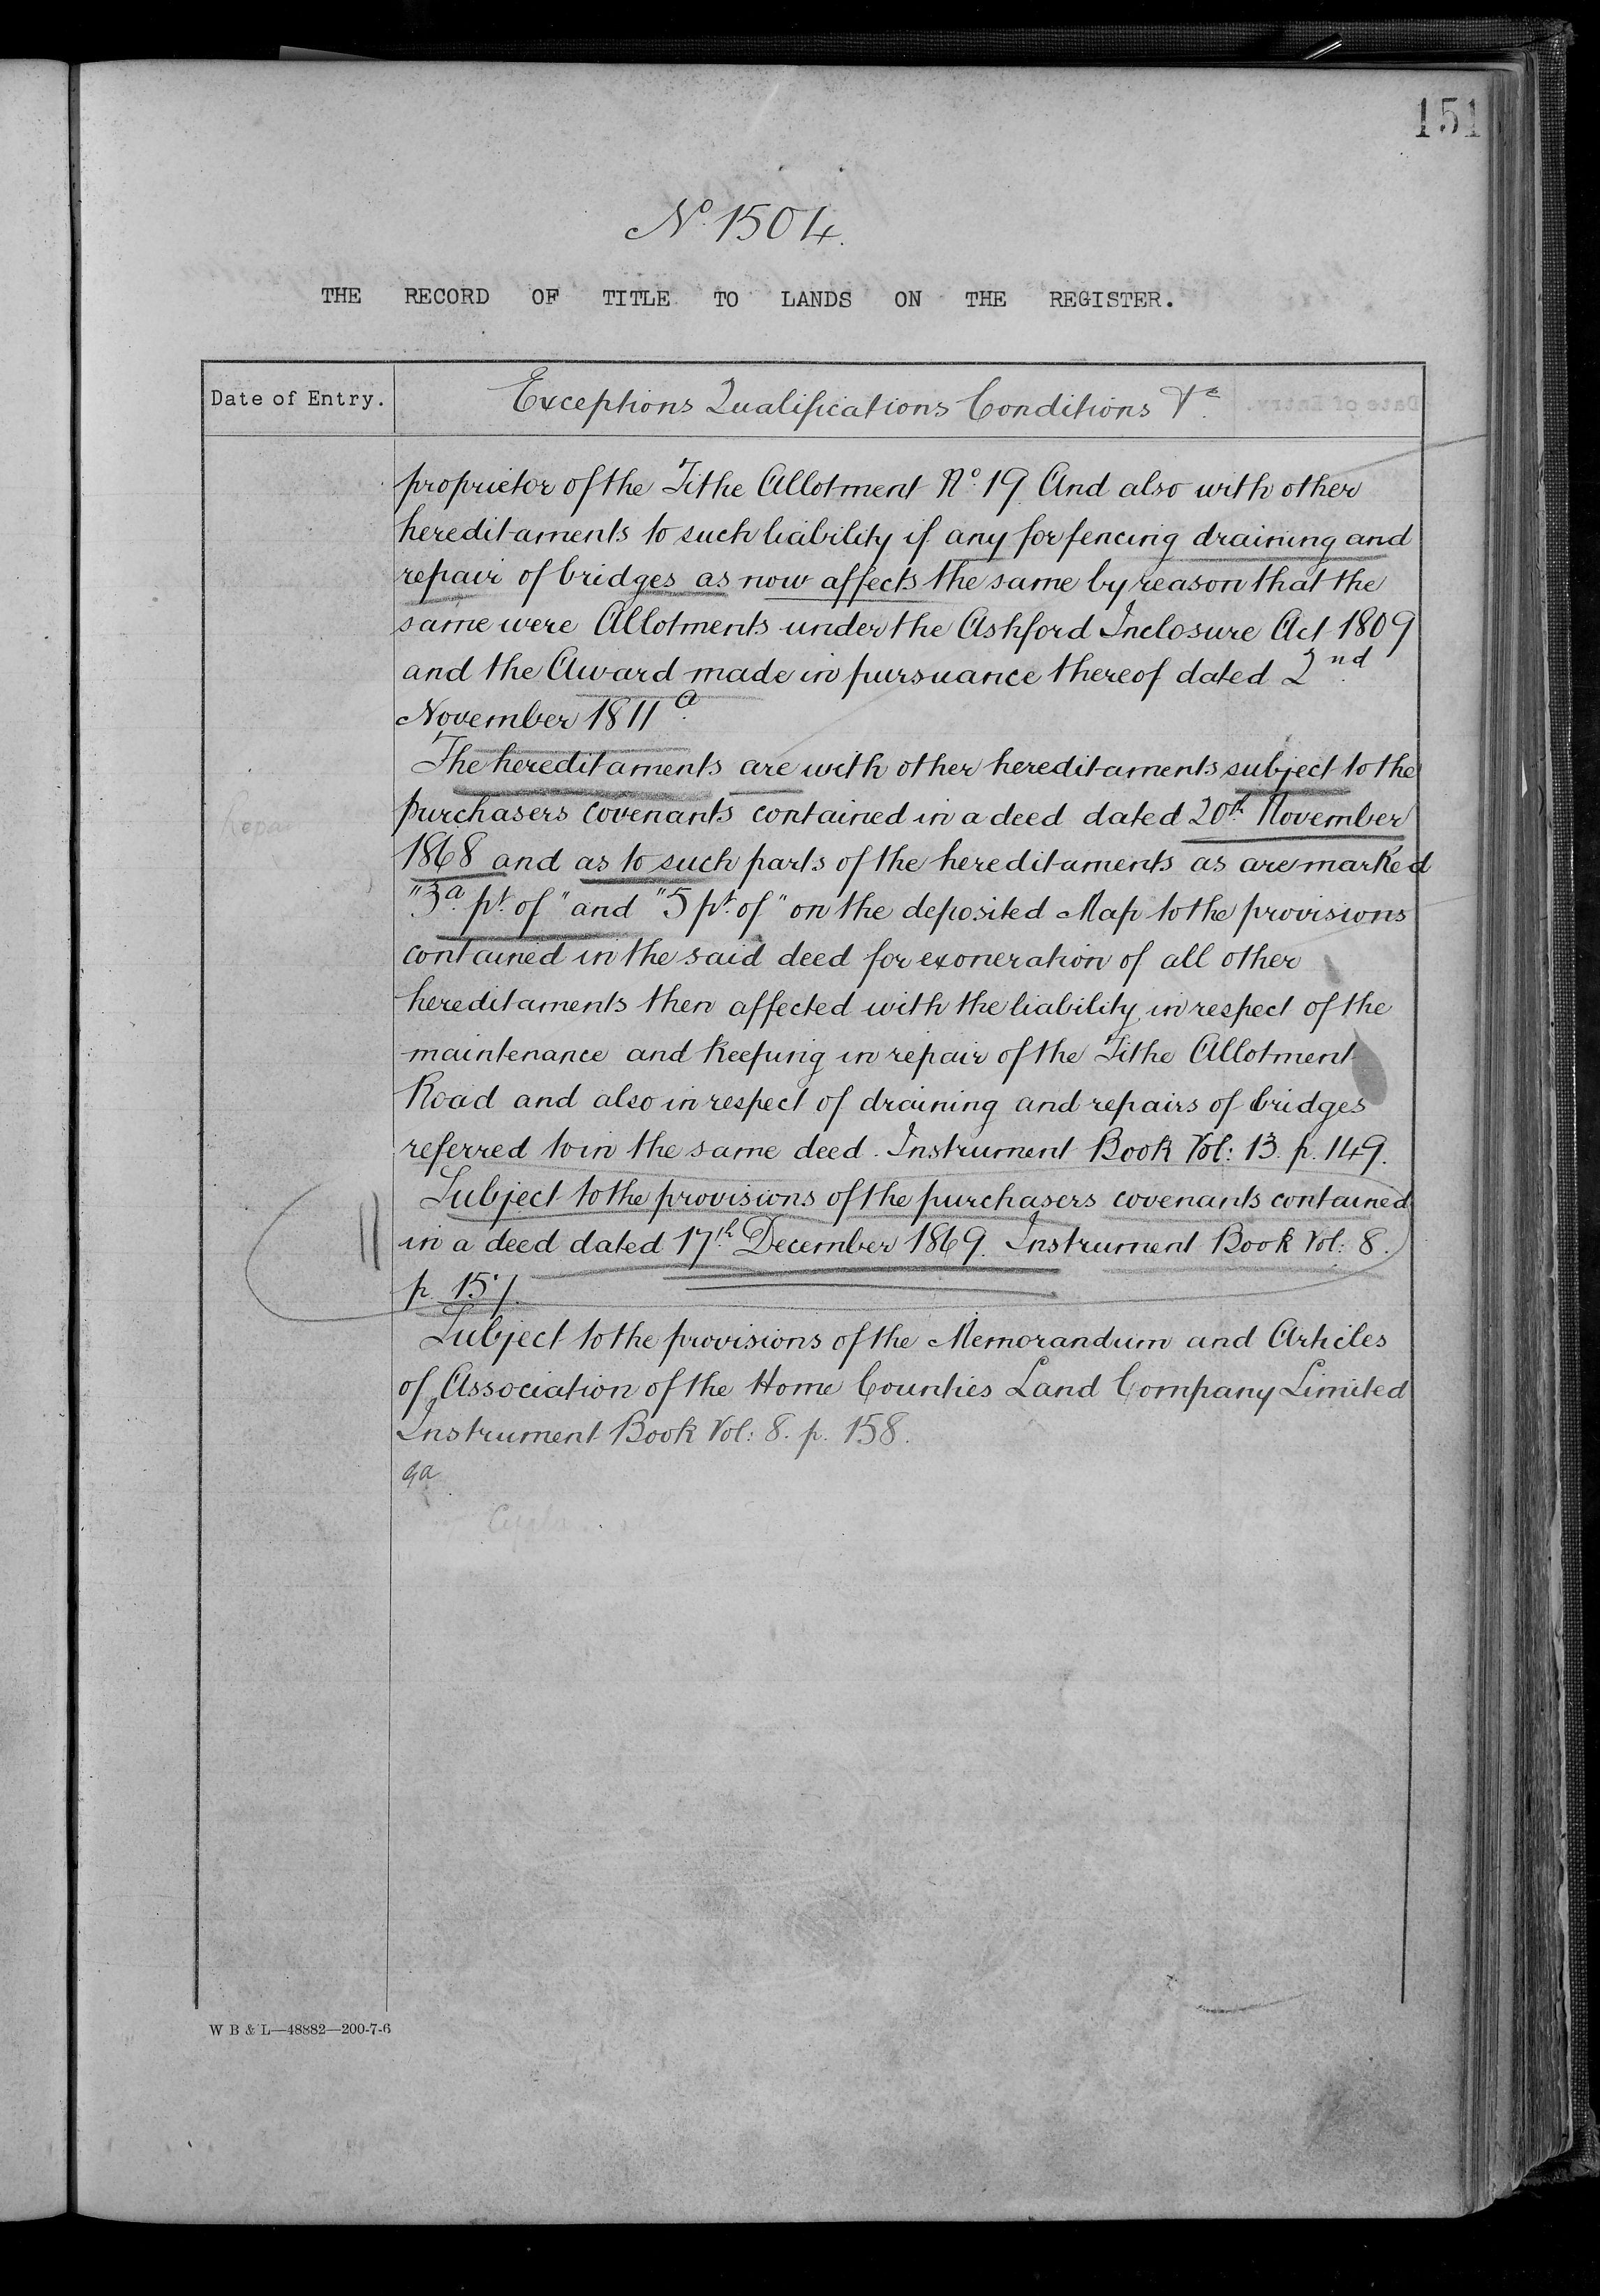 151
No. 1504.
THE RECORD OF TITLE TO LANDS ON THE REGISTER.
Date of Entry.
Exceptions Qualifications Conditions &c.
proprietor of the Tithe Allotment No. 19 And also with other
hereditaments to such liability if any for fencing draining and
repair of bridges as now affects the same by reason that the
same were Allotments under the Ashford Inclosure Act 1809
and the Award made in pursuance thereof dated 2nd
November 1811 a
The hereditaments are with other hereditaments subject to the
purchasers covenants contained in a deed dated 20th November
1868 and as to such parts of the hereditaments as are marked
"3a pt. of" and "5 pt. of" on the deposited Map to the provisions
contained in the said deed for exoneration of all other
hereditaments then affected with the liability in respect of the
maintenance and keeping in repair of the Tithe Allotment
Road and also in respect of draining and repairs of bridges
referred to in the same deed. Instrument Book Vol: 13. p. 149.
Subject to the provisions of the purchasers covenants contained
in a deed dated 17th December 1869. Instrument Book Vol: 8.
p. 157.
Subject to the provisions of the Memorandum and Articles
of Association of the Home Counties Land Company Limited
Instrument Book Vol: 8. p. 158.
W B & L—48882—200-7-6